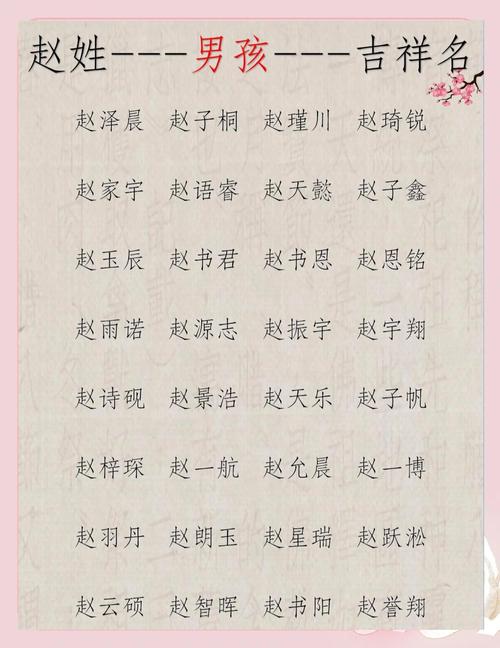 赵姓---男孩---吉祥名
赵泽晨 赵子桐 赵瑾川 赵琦锐
赵家宇 赵语睿 赵天懿 赵子鑫
赵玉辰 赵书君 赵书恩 赵恩铭
赵雨诺 赵源志 赵振宇 赵宇翔
赵诗砚 赵景浩 赵天乐 赵子帆
赵梓琛 赵一航 赵允晨 赵一博
赵羽丹 赵朗玉 赵星瑞 赵跃淞
赵云硕 赵智晖 赵书阳 赵誉翔